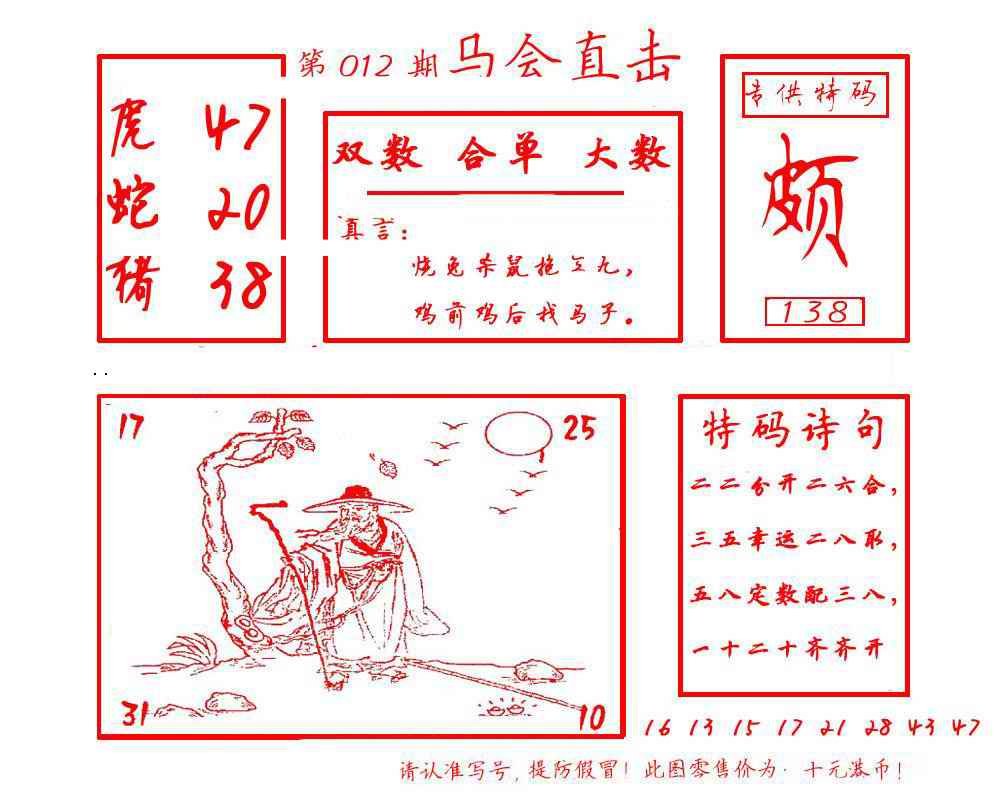 第 012 期 马会直击
虎 47
蛇 20
猪 38
双数 合单 大数
真言：
烧兔杀鼠拖三九，
鸡前鸡后找马子。
专供特码
颇
138
17
25
31
10
特码诗句
二二分开二六合，
三五幸运二八取，
五八定数配三八，
一十二十齐齐开
16 13 15 17 21 28 43 47
请认准写号，提防假冒！此图零售价为·十元港币！